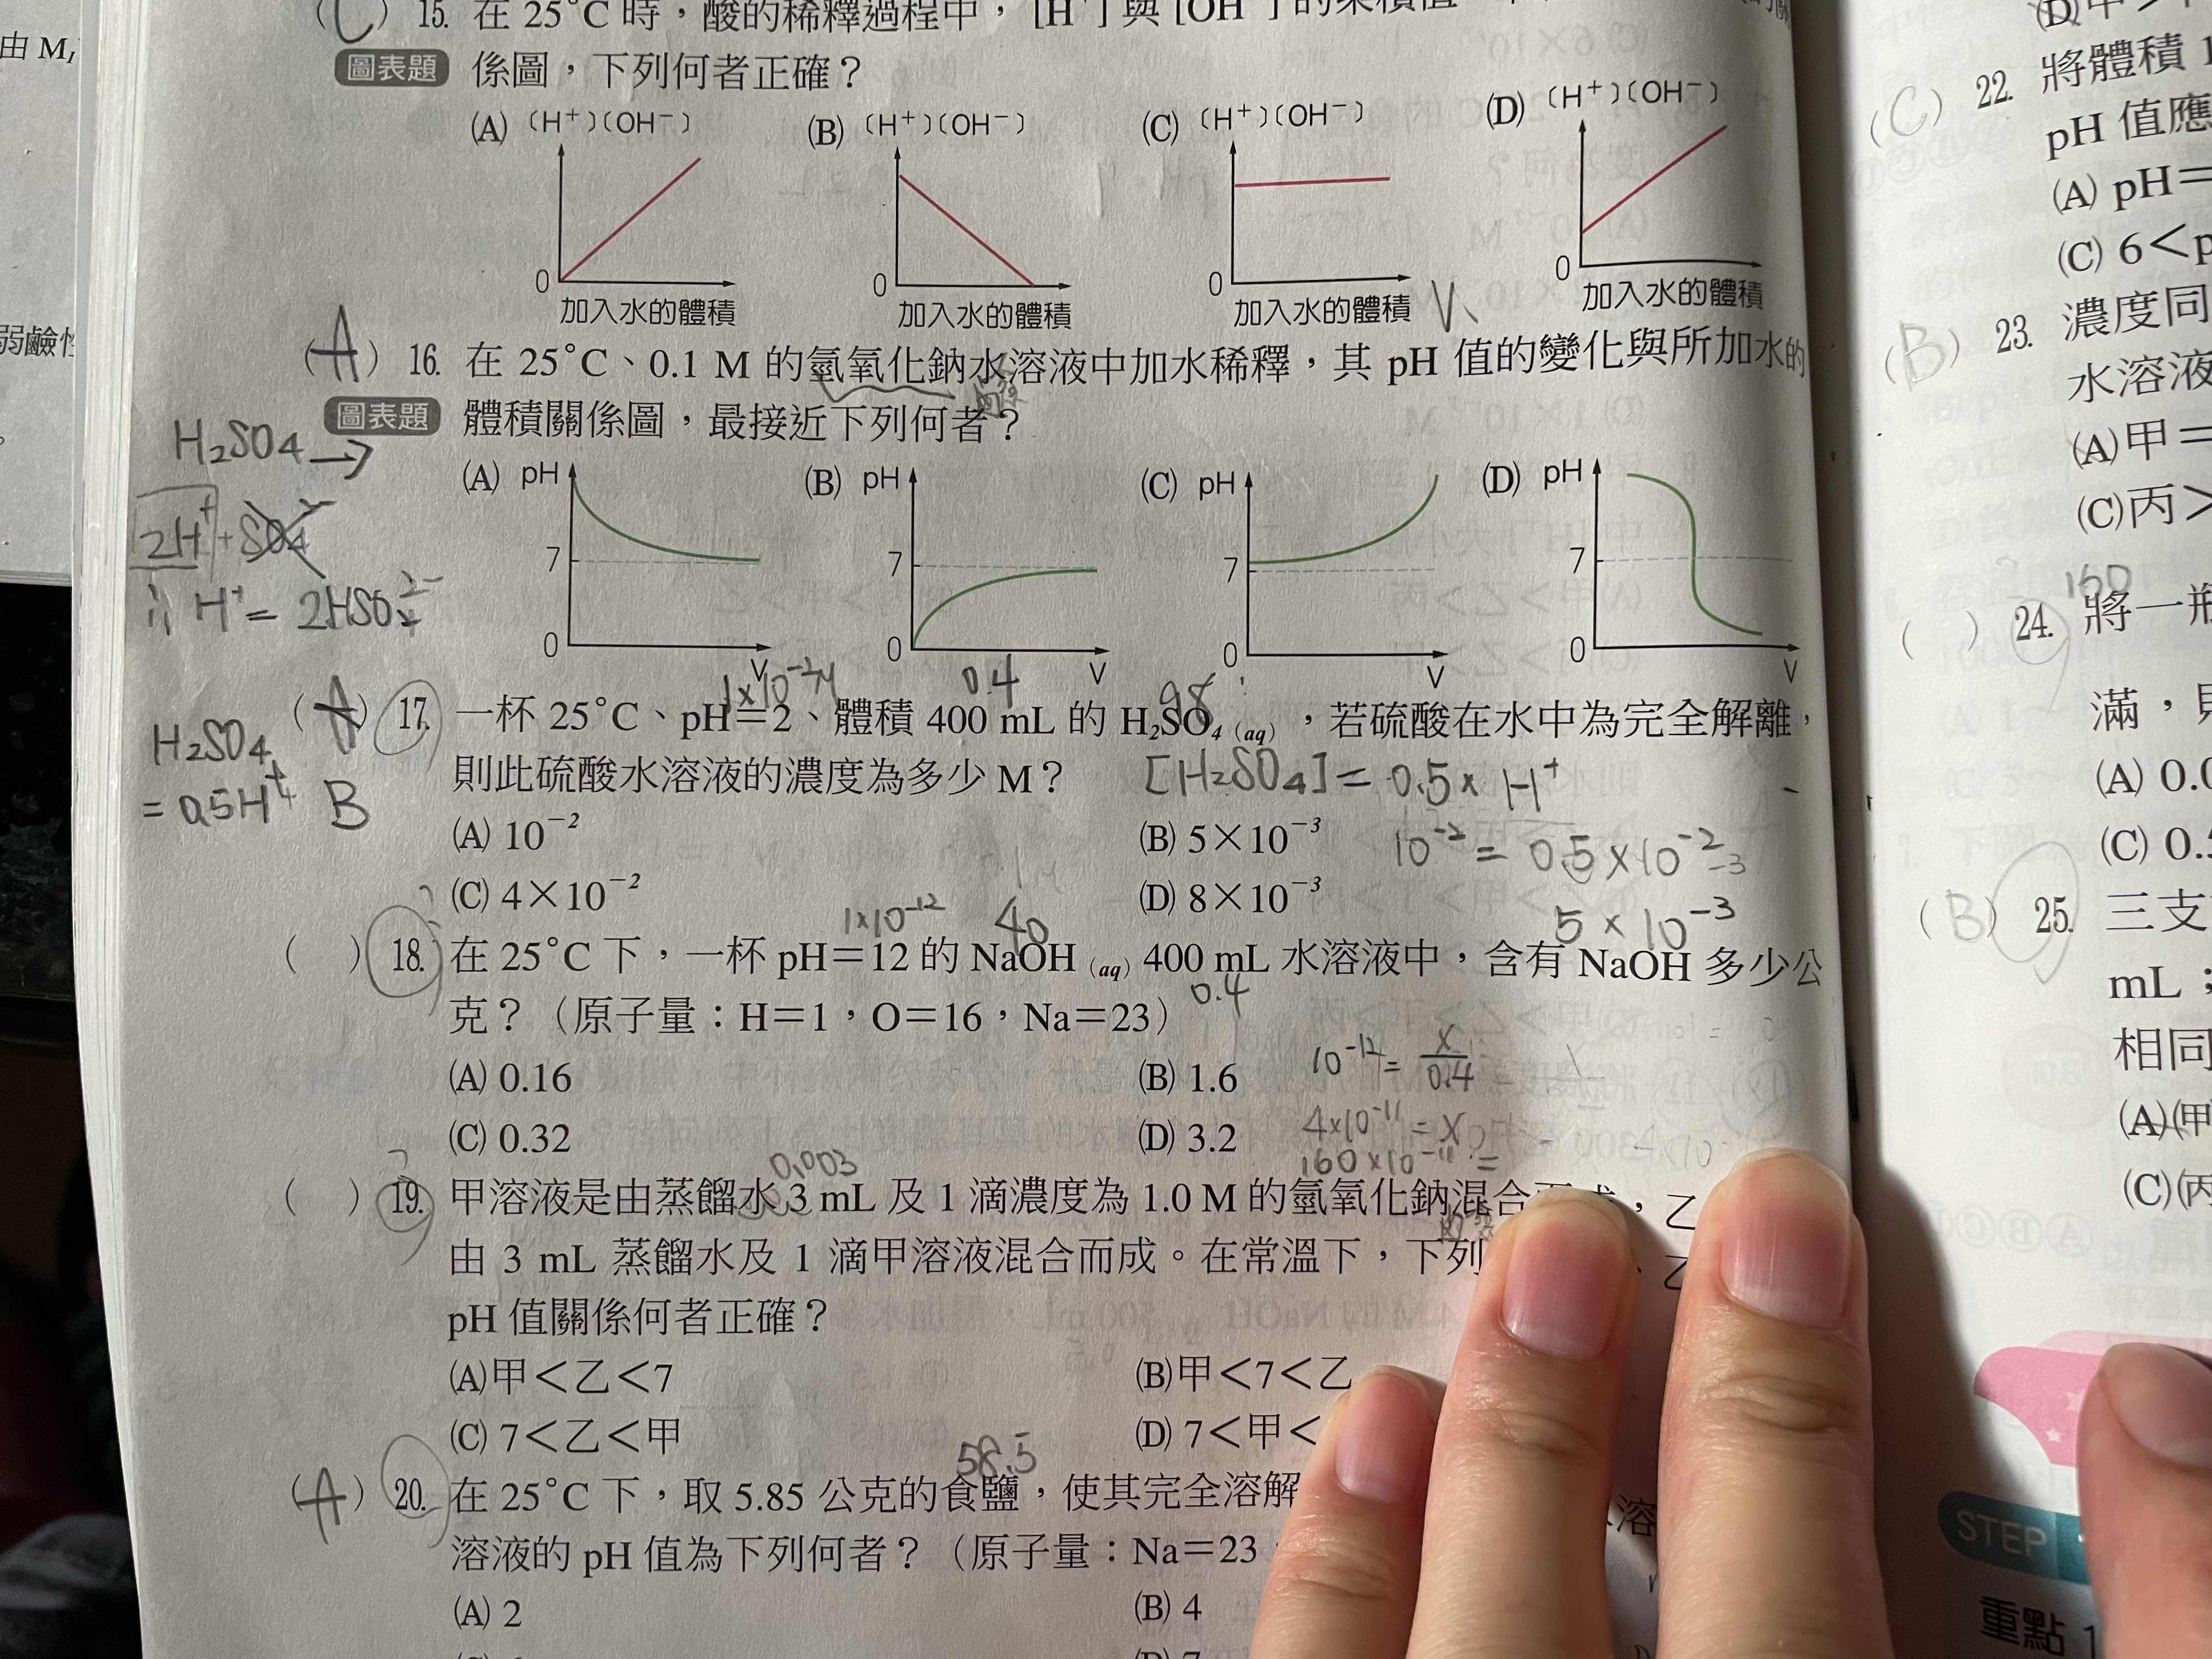 由 M
弱鹼性
(C) 15. 在 25°C 時，酸的稀釋過程中，[H⁺] 與 [OH⁻] 的乘積值
圖表題 係圖，下列何者正確？
(A) 〔H⁺〕〔OH⁻〕 (B) 〔H⁺〕〔OH⁻〕 (C) 〔H⁺〕〔OH⁻〕 (D) 〔H⁺〕〔OH⁻〕
0 0 0 0
加入水的體積 加入水的體積 加入水的體積 加入水的體積
V
(A) 16. 在 25°C、0.1 M 的氫氧化鈉水溶液中加水稀釋，其 pH 值的變化與所加水的
圖表題 體積關係圖，最接近下列何者？
(A) pH (B) pH (C) pH (D) pH
7 7 7 7
0 0 0 0
V V V V
H₂SO₄ →
2H⁺ + SO₄²⁻
∴ H⁺ = 2HSO₄²⁻
1×10⁻²M 0.4 98
(A) 17. 一杯 25°C、pH＝2、體積 400 mL 的 H₂SO₄ ₍aq₎，若硫酸在水中為完全解離，
則此硫酸水溶液的濃度為多少 M？ [H₂SO₄] = 0.5 × H⁺
H₂SO₄
= 0.5H⁺ B
(A) 10⁻² (B) 5×10⁻³ 10⁻² = 0.5×10⁻²⁻³
(C) 4×10⁻² (D) 8×10⁻³ 5 × 10⁻³
? 1×10⁻¹² 40
( ) 18. 在 25°C 下，一杯 pH＝12 的 NaOH ₍aq₎ 400 mL 水溶液中，含有 NaOH 多少公
0.4
克？（原子量：H＝1，O＝16，Na＝23）
(A) 0.16 (B) 1.6 10⁻¹² = x/0.4
(C) 0.32 (D) 3.2 4×10⁻¹¹ = x
160×10⁻¹¹ =
? 0.003
( ) 19. 甲溶液是由蒸餾水 3 mL 及 1 滴濃度為 1.0 M 的氫氧化鈉混合而成，乙
由 3 mL 蒸餾水及 1 滴甲溶液混合而成。在常溫下，下列
pH 值關係何者正確？
(A)甲＜乙＜7 (B)甲＜7＜乙
(C) 7＜乙＜甲 (D) 7＜甲＜
58.5
(A) 20. 在 25°C 下，取 5.85 公克的食鹽，使其完全溶解
溶液的 pH 值為下列何者？（原子量：Na＝23
(A) 2 (B) 4
(D)甲＞
(C) 22. 將體積 1
pH 值應
(A) pH＝
(C) 6＜p
(B) 23. 濃度同
水溶液
(A)甲＝
(C)丙＞
160
( ) 24. 將一瓶
滿，則
(A) 0.0
(C) 0.5
(B) 25. 三支
mL；
相同
(A)(甲
(C)(丙
STEP
重點 1